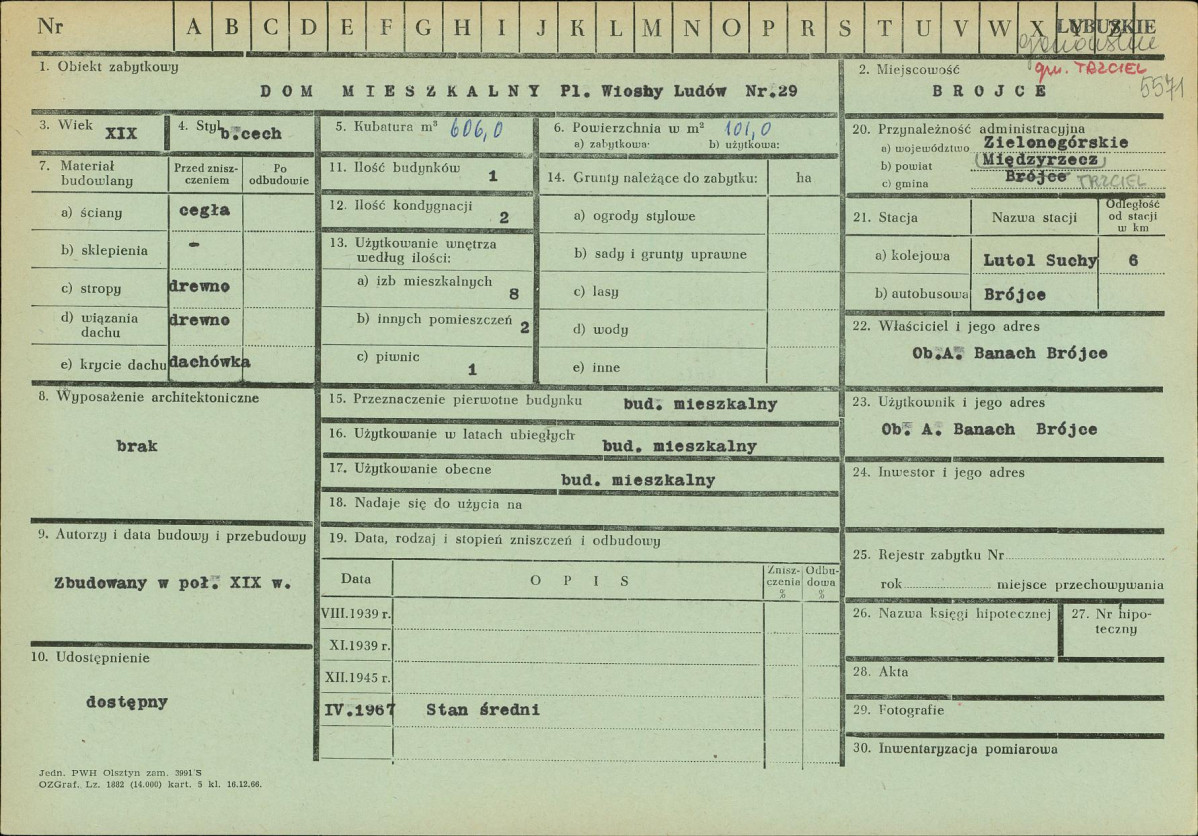 Nr A B C D E F G H I J K L M N O P R S T U V W X Y Z LUBUSKIE
gorzowskie
1. Obiekt zabytkowy
DOM MIESZKALNY Pl. Wiosny Ludów Nr.29
2. Miejscowość
gm. TRZCIEL
BROJCE
5571
3. Wiek XIX
4. Styl b.cech
5. Kubatura m³ 606,0
6. Powierzchnia w m² 101,0
a) zabytkowa: b) użytkowa:
20. Przynależność administracyjna
a) województwo Zielonogórskie
b) powiat (Międzyrzecz)
c) gmina Brójce TRZCIEL
7. Materiał budowlany
Przed znisz-
czeniem
Po
odbudowie
a) ściany cegła
b) sklepienia -
c) stropy drewno
d) wiązania
dachu drewno
e) krycie dachu dachówka
11. Ilość budynków 1
12. Ilość kondygnacji 2
13. Użytkowanie wnętrza
według ilości:
a) izb mieszkalnych 8
b) innych pomieszczeń 2
c) piwnic 1
14. Grunty należące do zabytku: ha
a) ogrody stylowe
b) sady i grunty uprawne
c) lasy
d) wody
e) inne
21. Stacja Nazwa stacji
Odległość
od stacji
w km
a) kolejowa Lutol Suchy 6
b) autobusowa Brójce
22. Właściciel i jego adres
Ob.A. Banach Brójce
8. Wyposażenie architektoniczne
brak
15. Przeznaczenie pierwotne budynku bud. mieszkalny
16. Użytkowanie w latach ubiegłych bud. mieszkalny
17. Użytkowanie obecne bud. mieszkalny
18. Nadaje się do użycia na
23. Użytkownik i jego adres
Ob. A. Banach Brójce
24. Inwestor i jego adres
9. Autorzy i data budowy i przebudowy
Zbudowany w poł. XIX w.
10. Udostępnienie
dostępny
19. Data, rodzaj i stopień zniszczeń i odbudowy
Data OPIS
Znisz-
czenia
%
Odbu-
dowa
%
VIII.1939 r.
XI.1939 r.
XII.1945 r.
IV.1967 Stan średni
25. Rejestr zabytku Nr
rok miejsce przechowywania
26. Nazwa księgi hipotecznej
27. Nr hipo-
teczny
28. Akta
29. Fotografie
30. Inwentaryzacja pomiarowa
Jedn. PWH Olsztyn zam. 3991 S
OZGraf. Lz. 1882 (14.000) kart. 5 kl. 16.12.66.